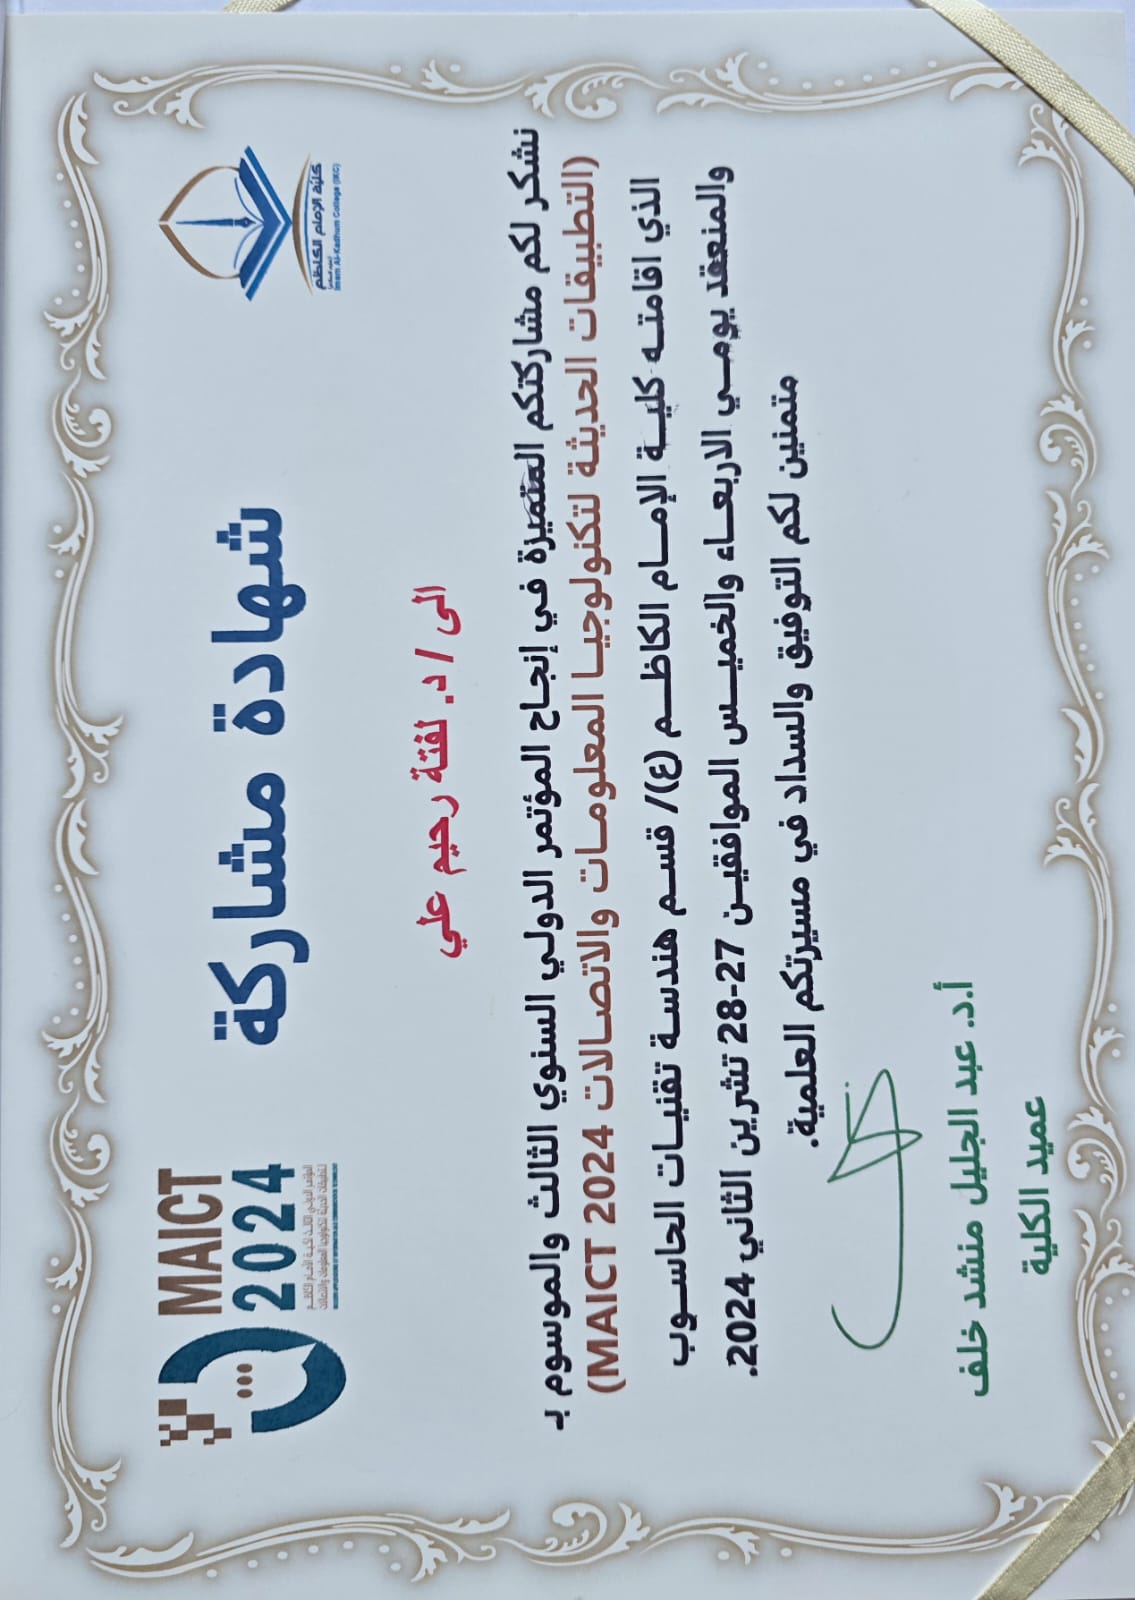 MAICT
2024
كلية الإمام الكاظم
Imam Al-Kadhum College (IKC)
شهادة مشاركة
الى / د. لفتة رحيم علي
نشكر لكم مشاركتكم المتميزة في إنجاح المؤتمر الدولي السنوي الثالث والموسوم بـ
(التطبيقات الحديثة لتكنولوجيا المعلومات والاتصالات MAICT 2024)
الذي اقامته كلية الإمام الكاظم (ع)/ قسم هندسة تقنيات الحاسوب
والمنعقد يومي الاربعاء والخميس الموافقين 27-28 تشرين الثاني 2024.
متمنين لكم التوفيق والسداد في مسيرتكم العلمية.
أ.د. عبد الجليل منشد خلف
عميد الكلية